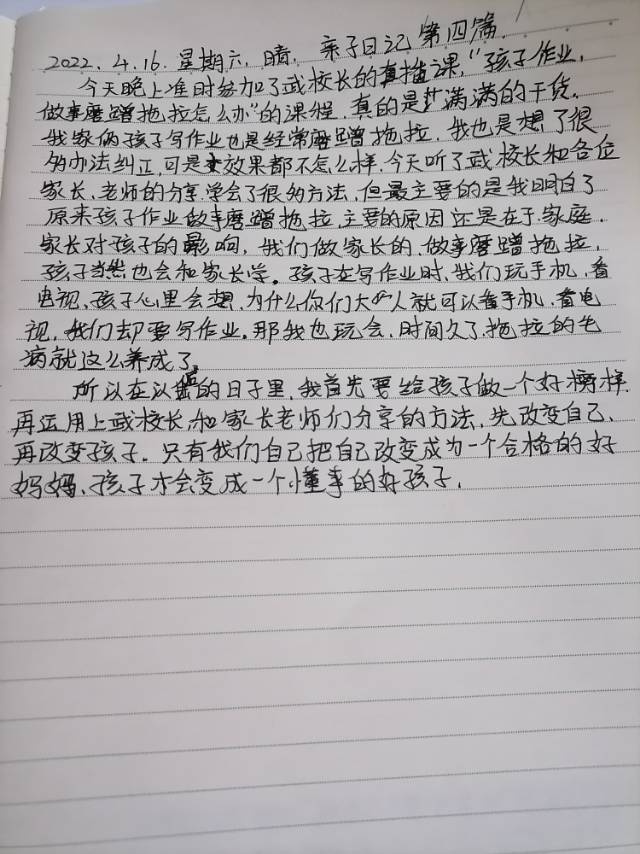 2022.4.16.星期六.晴. 亲子日记第四篇.
今天晚上准时参加了武校长的直播课,"孩子作业,
做事磨蹭拖拉怎么办"的课程.真的是满满的干货.
我家俩孩子写作业也是经常磨蹭拖拉,我也是想了很
多办法纠正,可是效果都不怎么样.今天听了武校长和各位
家长、老师的分享.学会了很多方法,但最主要的是我明白了
原来孩子作业做事磨蹭拖拉,主要的原因还是在于家庭.
家长对孩子的影响,我们做家长的.做事磨蹭拖拉,
孩子当然也会和家长学。孩子在写作业时,我们玩手机,看
电视,孩子心里会想,为什么你们大人就可以看手机.看电
视,我们却要写作业。那我也玩会.时间久了,拖拉的毛
病就这么养成了。
所以在以后的日子里,我首先要给孩子做一个好榜样.
再运用上武校长和家长老师们分享的方法.先改变自己.
再改变孩子.只有我们自己把自己改变成为一个合格的好
妈妈、孩子才会变成一个懂事的好孩子.